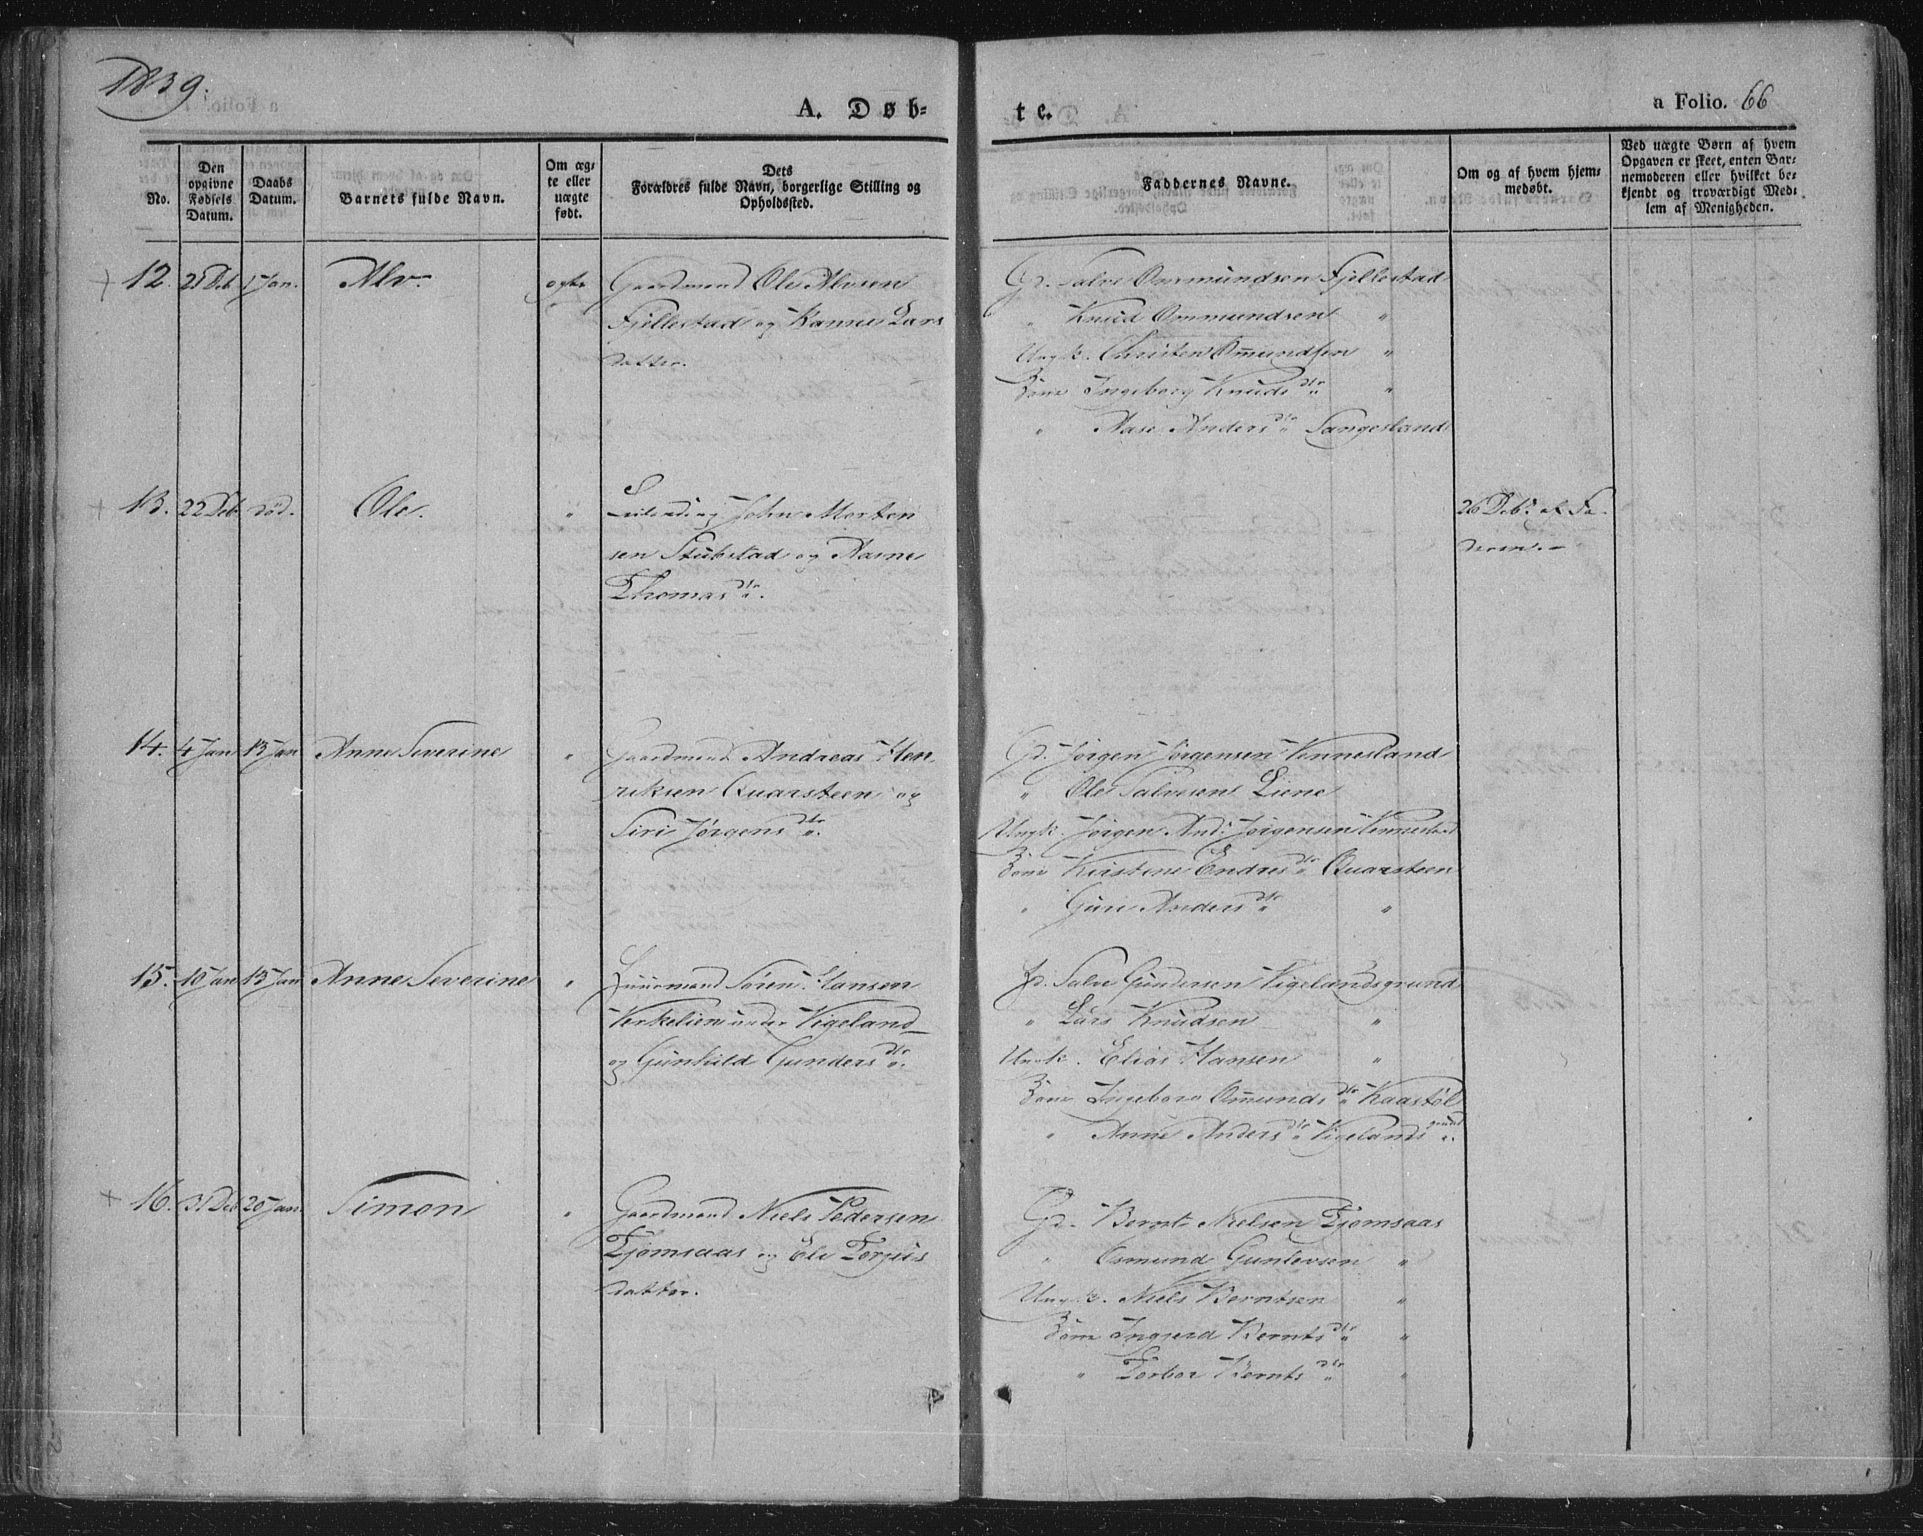 1839.
A. Døb-
te.
a Folio. 66
No.
Den opgivne Fødsels Datum.
Daabs Datum.
Barnets fulde Navn.
Om ægte eller uægte født.
Dets Forældres fulde Navn, borgerlige Stilling og Opholdssted.
Faddernes Navne.
Om og af hvem hjemmedøbt.
Ved uægte Børn af hvem Opgaven er skeet, enten Barnemoderen eller hvilket bekjendt og troværdigt Medlem af Menigheden.
12. 21 Deb 1 Jan. Alv. ægte Gaardmand Ole Alvsen
Fjellestad og Lars
datter.
Gd. Salve Ommundsen Fjellestad
" Knud Ommundsen "
Ungk. Christen Om̅undsen "
Kone Ingeborg Knudsdtr "
" Aase Andersdtr Sangesland
13. 22 Deb død. Ole. " Leilending John Morten
sen Stubstad og Aasne
Thomasdtr.
26 Debr. af Fa-
deren.-
14. 4 Jan 13 Jan Anne Severine " Gaardmand Andreas Hen
riksen Quarsteen og
Siri Jørgensdtr.
Gd. Jørgen Jørgensen Vennesland
" Ole Salvesen Liene
Ungk. Jørgen And: Jørgensen Vennesland
Kone Kirstine Endresdtr Quarsteen
" Guri Andersdtr "
15. 10 Jan 13 Jan Anne Severine " Huusmand Søren Hansen
Verkelien under Vigeland
og Gunhild Gundersdtr.
Salve Gundersen Vigelandsgrund
" Lars Knudsen "
Ungk. Elias Hansen "
Kone Ingeborg Om̅undsdtr Kaastøl
" Anne Andersdtr Vigelandsgrund.
16. 31 Deb 20 Jan. Simon " Gaardmand Niels Pedersen
Tjomsaas og Eli Torjus
datter.
Gd. Bernt Nielsen Tjomsaas
" Osmund Guntevsen "
Ungk. Niels Berntsen "
Kone Ingjerd Berntsdtr "
" Torbor Berntsdtr "